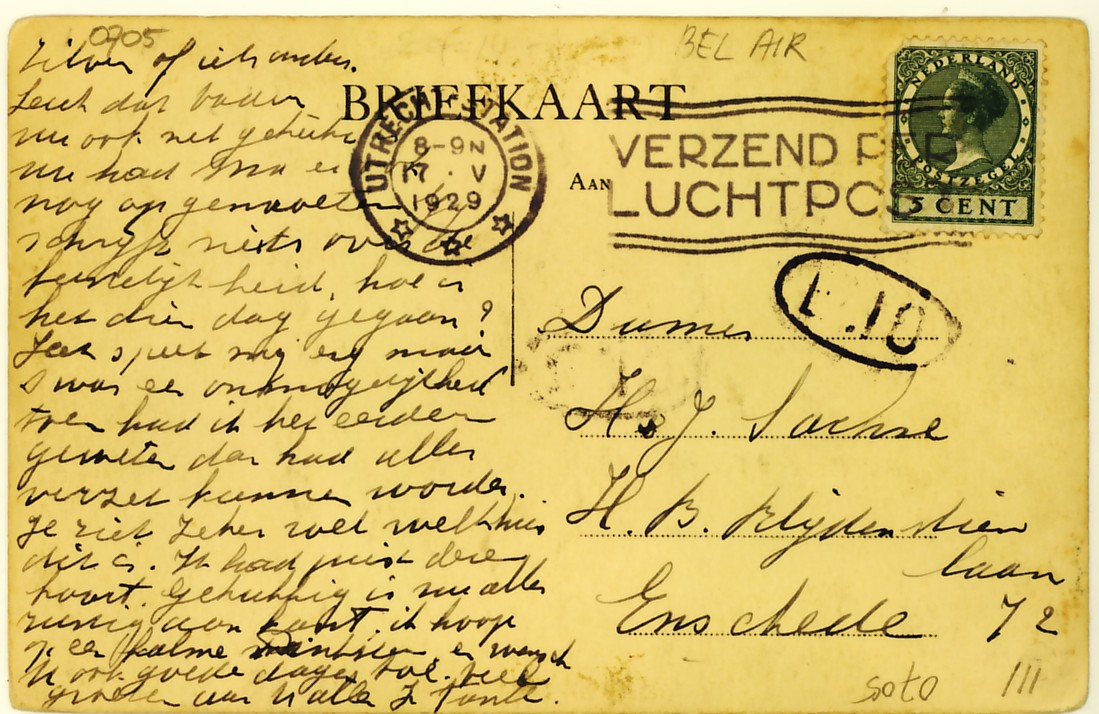 0705
Zilver of iets anders.
Leuk dat vader
nu ook net
nu had ma
nog op
schrijft niets over de
hoe is
het dien dag gegaan?
Het spijt mij erg maar
't was een onmogelijkheid
toen had ik het eerder
geweten dan had alles
verzet kunnen worden.
Je ziet zeker wel welk huis
dit is. Ik had juist deze
kaart. Gelukkig is nu alles
rustig aan kant. ik hoop
op een kalme en wensch
U ook goede dagen toe. veel
groeten aan U alle Je Tante.
BEL AIR
BRIEFKAART
UTRECHT STATION
8-9N
17 . V
1929
VERZEND PER
LUCHTPOST
NEDERLAND
POSTZEGEL
5 CENT
AAN
Dames
H. J. Sachse
H. B. Blijdenstien
laan
Enschede 72
soto III